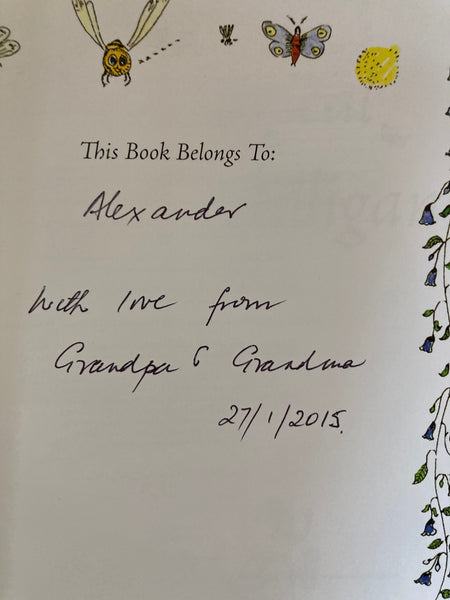 This Book Belongs To:
Alexander
With love from
Grandpa & Grandma
27/1/2015.